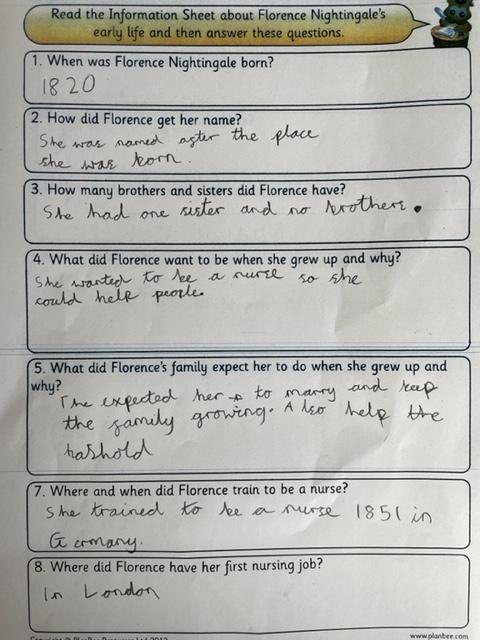 Read the Information Sheet about Florence Nightingale's
early life and then answer these questions.
1. When was Florence Nightingale born?
1820
2. How did Florence get her name?
She was named aster the place
she was born.
3. How many brothers and sisters did Florence have?
She had one sister and no brothers.
4. What did Florence want to be when she grew up and why?
She wanted to be a nurse so she
could help people.
5. What did Florence's family expect her to do when she grew up and
why?
The expected her to marry and keep
the family growing. Also help the
hashold
7. Where and when did Florence train to be a nurse?
She trained to be a nurse 1851 in
Germany.
8. Where did Florence have her first nursing job?
In London
www.planbee.com